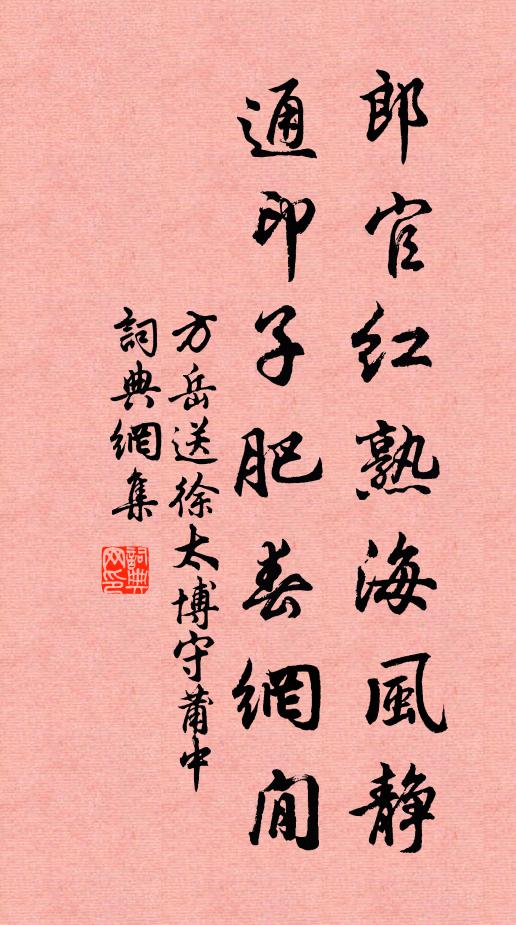 郎官红熟海風静
通印子肥春網閒
方岳送徐太博守莆中
詞典網集
詞典网印